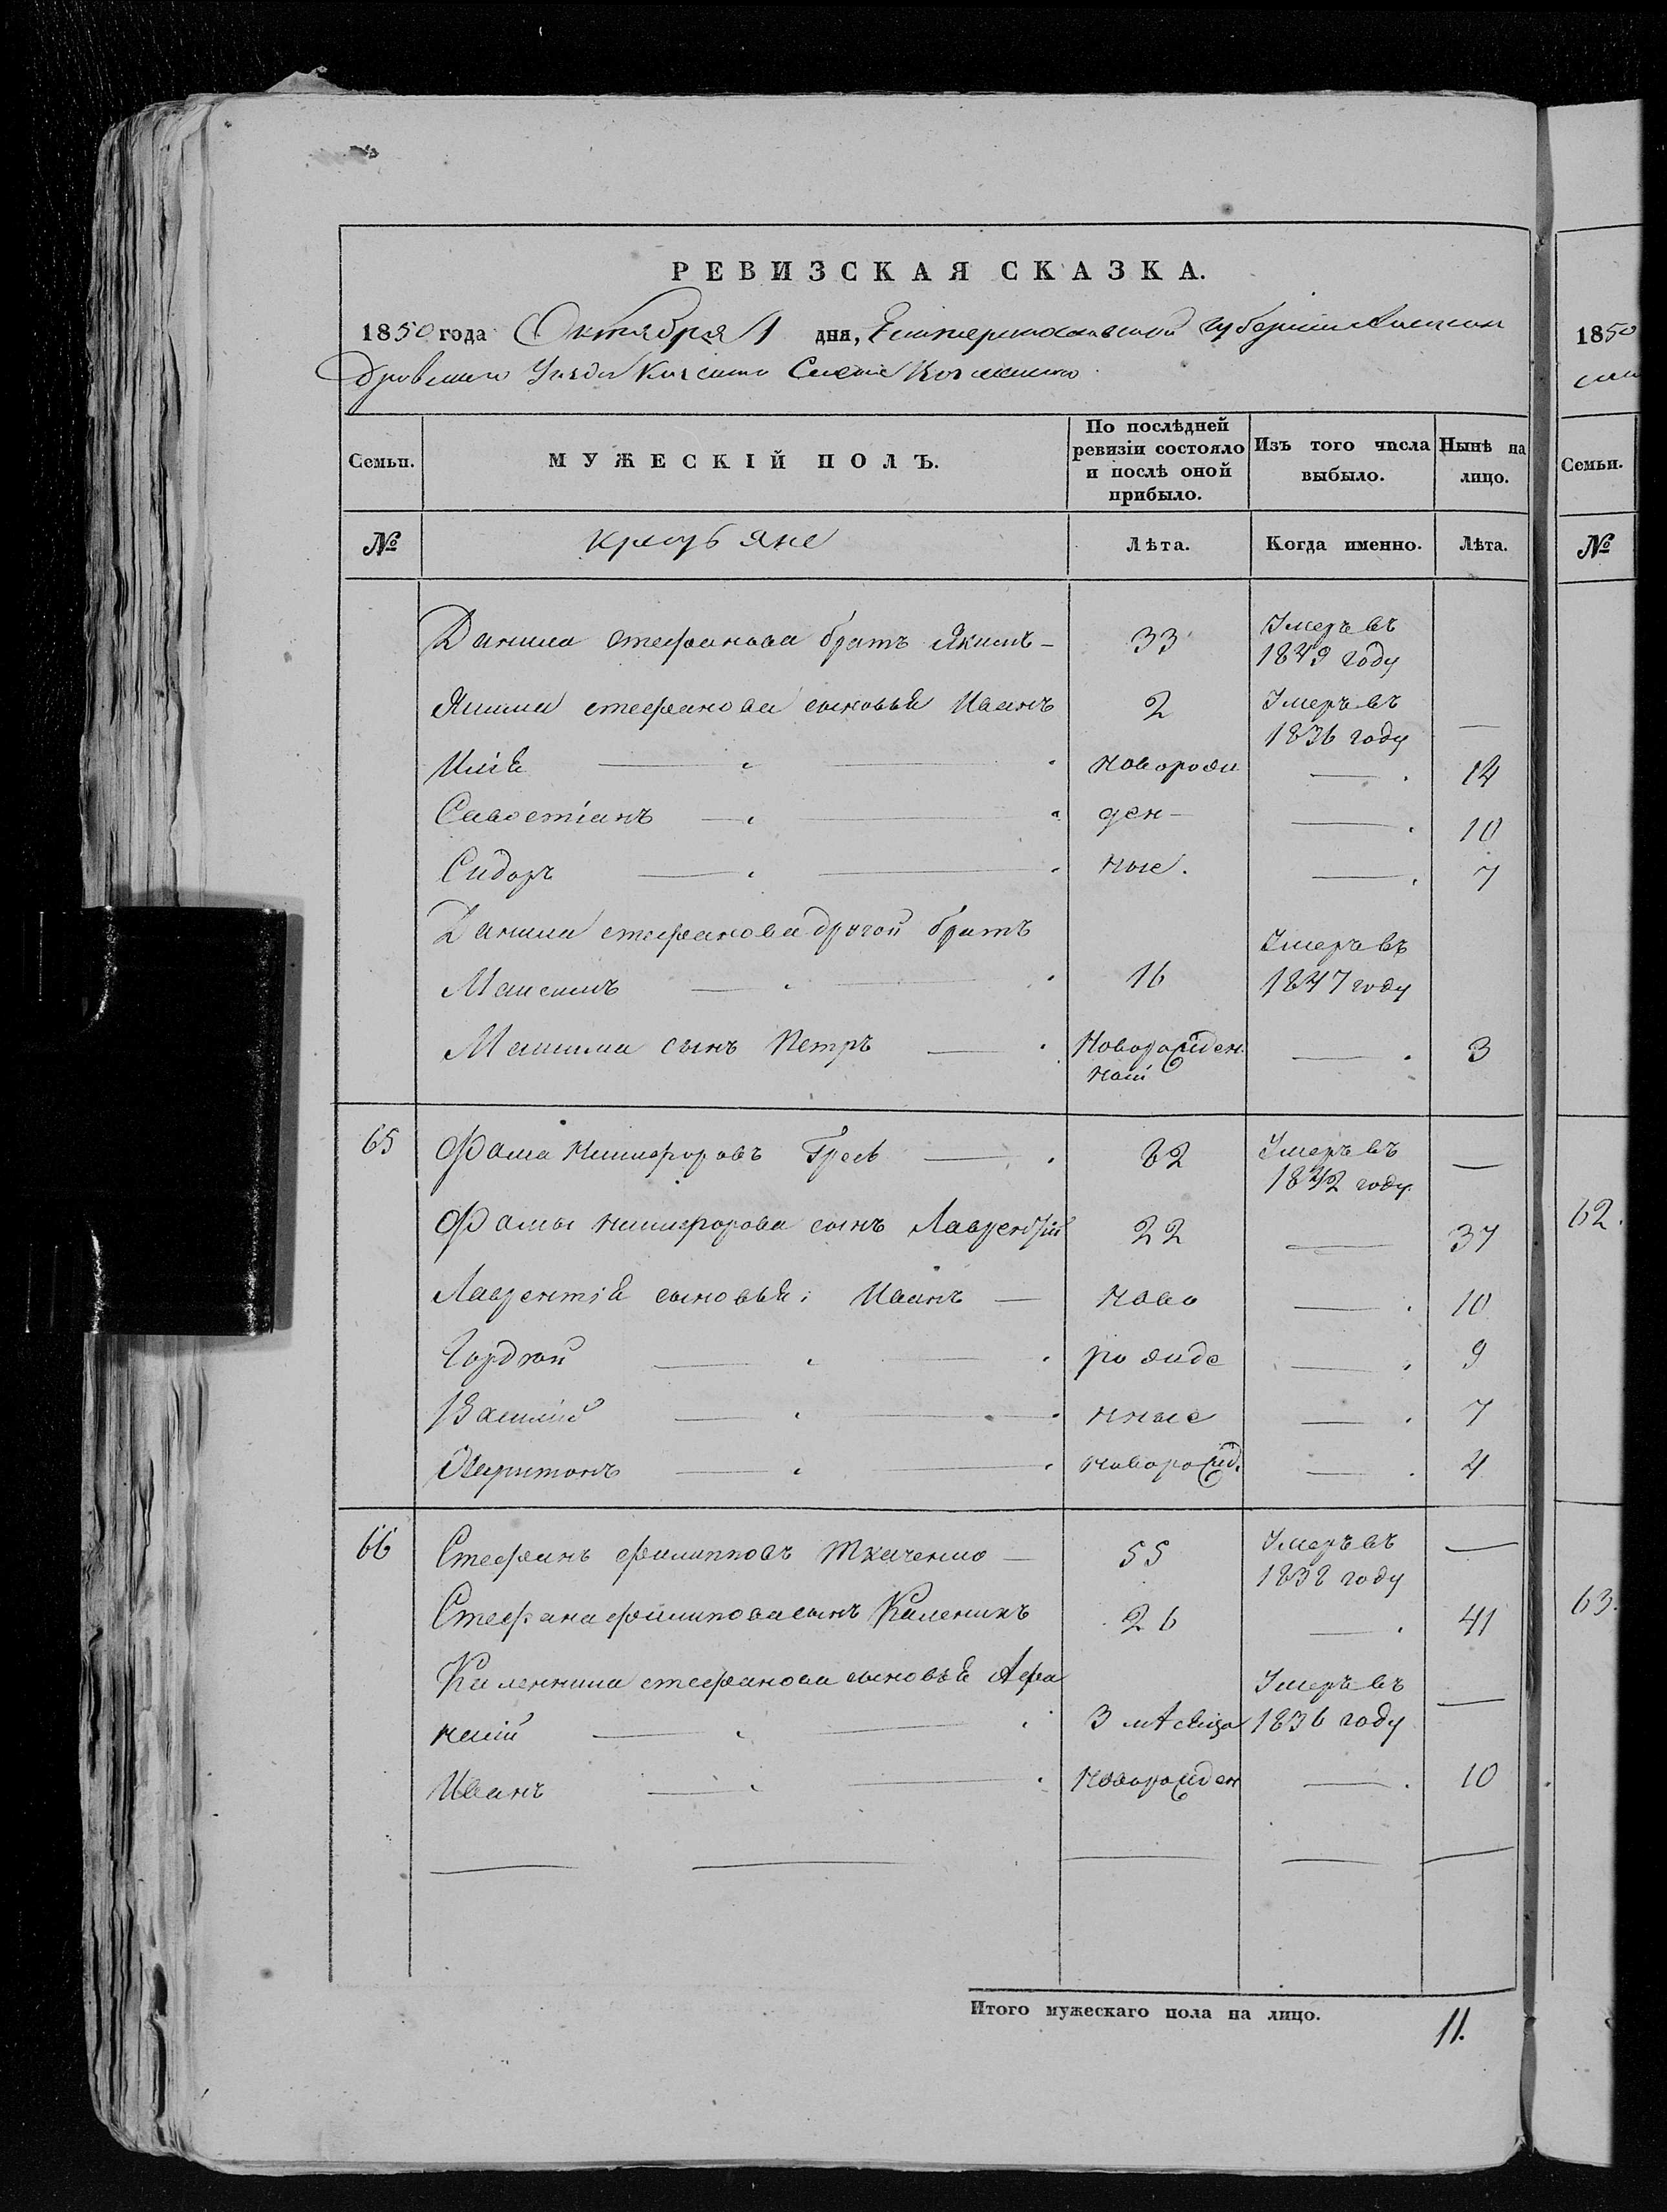 РЕВИЗСКАЯ СКАЗКА.
1850 года Октября 1 дня, Екатеринославской губерніи Алексан
дровскаго Уезда Села
Семьи. МУЖЕСКІЙ ПОЛЪ. По послѣдней ревизіи состояло и послѣ оной прибыло. Изъ того числа выбыло. Нынѣ на лицо.
№ Лѣта. Когда именно. Лѣта.
Данила Стефанова братъ Якимъ — 33 Умеръ въ 1849 году
Якима стефанова сыновья Иванъ 2 Умеръ въ 1836 году —
Илія новорож — 14
Савостіанъ ден- — 10
Сидоръ ные. — 7
Данила стефанова другой братъ
Максимъ 16 Умеръ въ 1847 году
Максима сынъ Петръ Новорожден ный — 3
65 Фома Никифоровъ 62 Умеръ въ 1842 году —
Фомы никифорова сынъ Лаврентій 22 — 37
Лаврентія сыновья: Иванъ — ново — 10
Гордѣй рожде — 9
Василій нные — 7
Харитонъ новорожд. — 4
66 Стефанъ филипповъ Ткаченко — 55 Умеръ въ 1838 году —
Стефана филипова сынъ Каленикъ 26 — 41
Каленика стефанова сыновья Афа
насій 3 мѣсяца Умеръ въ 1836 году —
Иванъ Новорожден — 10
Итого мужескаго пола на лицо. 11.
1850
Семьи.
№
62.
63.